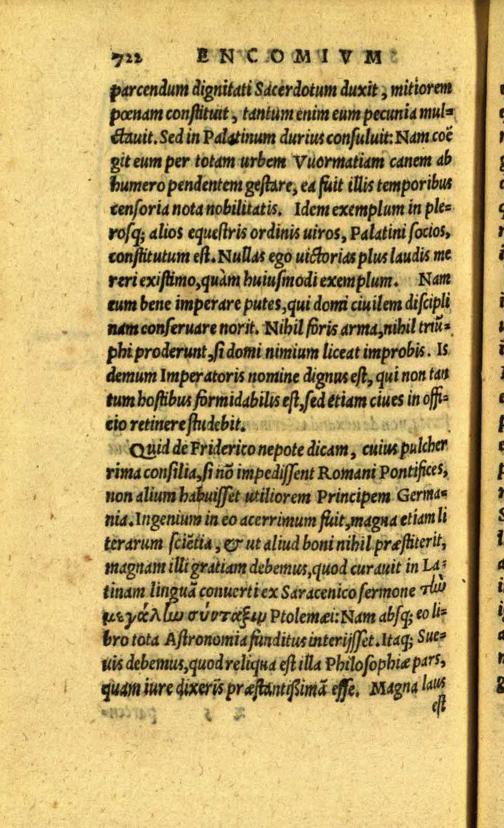 722 ENCOMIVM
parcendum dignitati Sacerdotum duxit, mitiorem
pœnam constituit, tantum enim eum pecunia mul-
ctauit. Sed in Palatinum durius consuluit: Nam coë
git eum per totam urbem Vuormatiam canem ab
humero pendentem gestare, ea fuit illis temporibus
censoria nota nobilitatis. Idem exemplum in ple-
rosq; alios equestris ordinis uiros, Palatini socios,
constitutum est. Nullas ego uictorias plus laudis me
reri existimo, quàm huiusmodi exemplum. Nam
eum bene imperare putes, qui domi ciuilem discipli
nam conseruare norit. Nihil foris arma, nihil triũ-
phi proderunt, si domi nimium liceat improbis. Is
demum Imperatoris nomine dignus est, qui non tan
tum hostibus formidabilis est, sed etiam ciues in offi-
cio retinere studebit.
Quid de Friderico nepote dicam, cuius pulcher
rima consilia, si nõ impedissent Romani Pontifices,
non alium habuisset utiliorem Principem Germa-
nia. Ingenium in eo acerrimum fuit, magna etiam li
terarum sciẽtia, & ut aliud boni nihil præstiterit,
magnam illi gratiam debemus, quod curauit in La-
tinam linguã conuerti ex Saracenico sermone τὴν
μεγάλην σύνταξιν Ptolemæi: Nam absq; eo li-
bro tota Astronomia funditus interijsset. Itaq; Sue-
uis debemus, quod reliqua est illa Philosophiæ pars,
quam iure dixeris præstantißimã esse. Magna laus
est